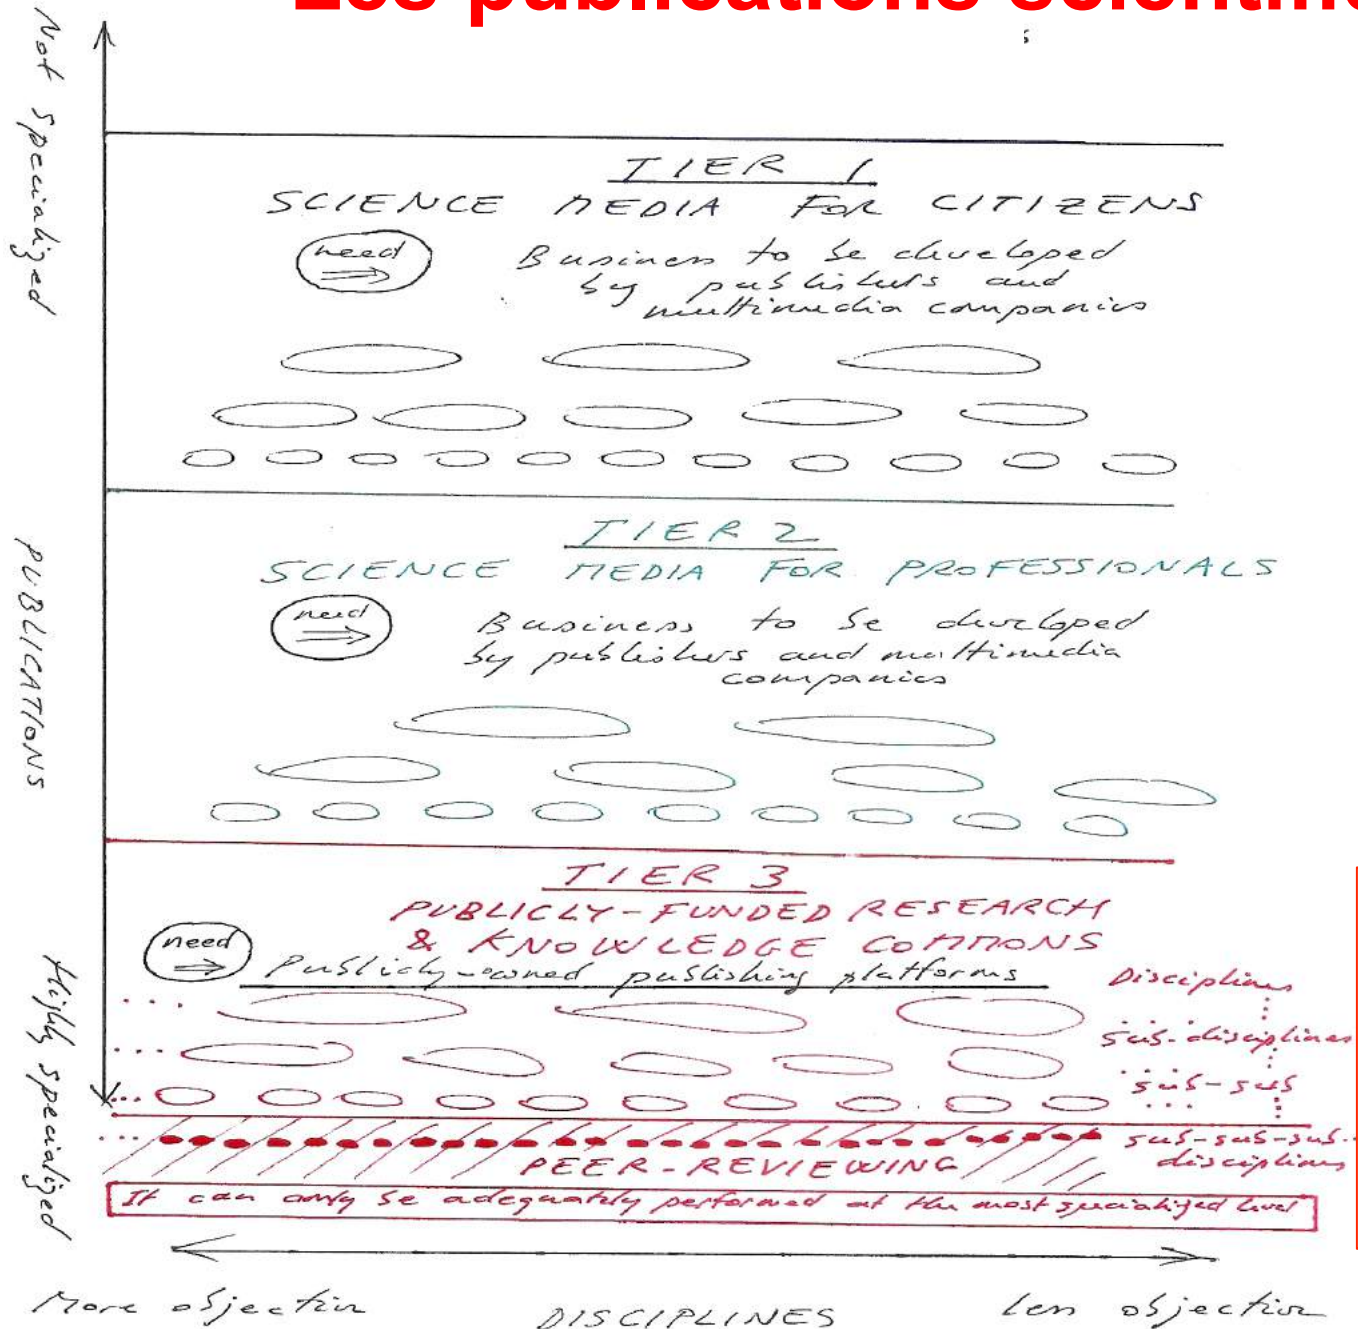 Les publications scientifi
Not specialized
TIER 1
SCIENCE MEDIA FOR CITIZENS
need
Business to be developed
by publishers and
multimedia companies
PUBLICATIONS
TIER 2
SCIENCE MEDIA FOR PROFESSIONALS
need
Business to be developed
by publishers and multimedia
companies
Highly specialized
TIER 3
PUBLICLY-FUNDED RESEARCH
& KNOWLEDGE COMMONS
need
Publicly-owned publishing platforms
Disciplines
sub-disciplines
sub-sub
sub-sub-sub-
disciplines
PEER-REVIEWING
It can only be adequately performed at the most specialized level
More objective
DISCIPLINES
Less objective